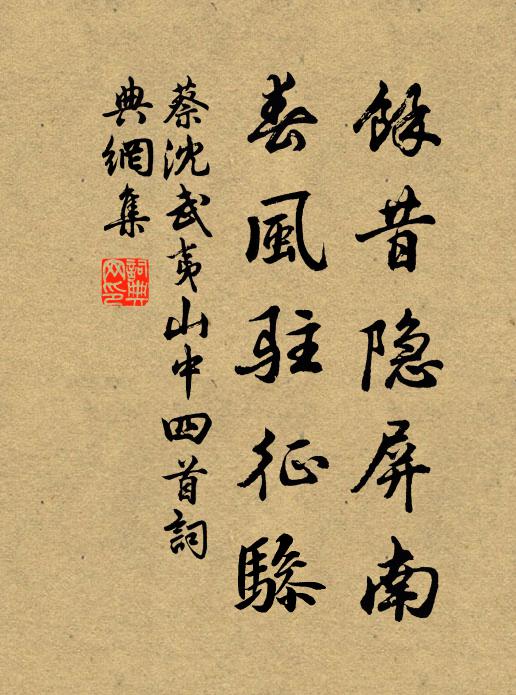 餘昔隐屏南
春風駐征驂
蔡沈武夷山中四首詞
典網集
詞典网印